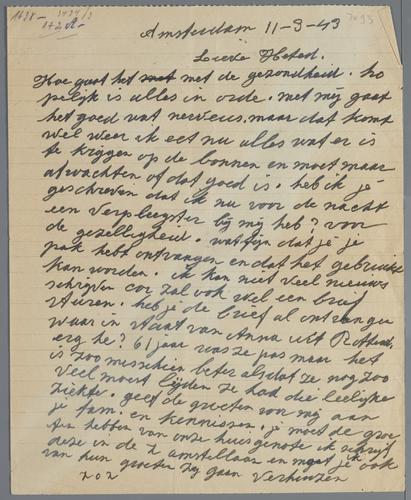 1+2 A.
Amsterdam 11-3-43
Lieve
Hoe gaat het met de gezondheid. ho
pelijk is alles in orde. met mij gaat
het goed wat nerveus. maar dat komt
wel weer ik eet nu alles wat er is
te krijgen op de bonnen en moet maar
afwachten of dat goed is. heb ik je
geschreven dat ik nu voor de nacht
een verpleegster bij mij heb? voor
de gezelligheid. wat fijn dat je je
pak hebt ontvangen en dat het gebruikt
kan worden. ik kan niet veel nieuws
schrijven cor zal ook wel een brief
sturen. heb je de brief al ontvangen
waar in staat van Anna uit Rotterd.
erg he? 61 jaar was ze pas maar het
is zoo misschien beter als dat ze nog zoo
veel moest lijden ze had die leelijke
ziekte. geef de groeten voor mij aan
je fam. en kennissen. je moet de groe
ten hebben van onze huisgenote ik schrijf
deze in de z amstellaan en moet je ook
van hun groeten zij gaan verhuizen
z o z